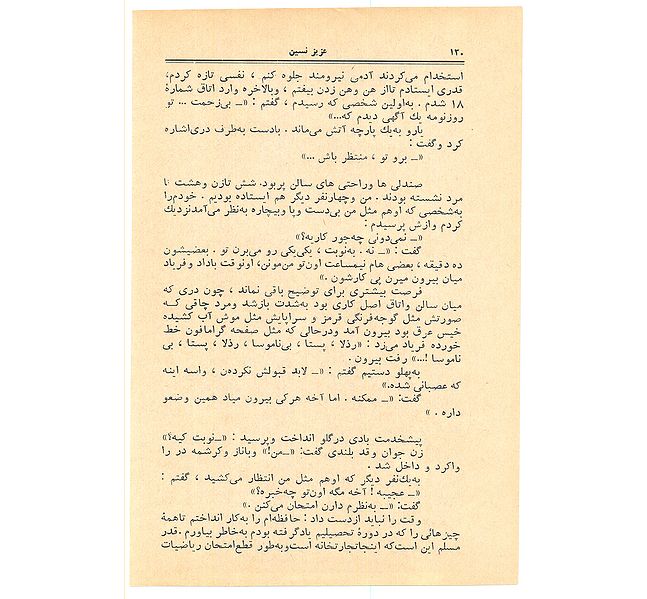 ۱۳۰
عزیز نسین
استخدام می‌کردند آدمی نیرومند جلوه کنم ، نفسی تازه کردم،
قدری ایستادم تااز هن وهن زدن بیفتم ، وبالاخره وارد اتاق شمارهٔ
۱۸ شدم . به‌اولین شخصی که رسیدم ، گفتم : «ــ بی‌زحمت ... تو
روزنومه یك آگهی دیدم که...»
یارو به‌یك پارچه آتش می‌ماند . بادست به‌طرف دری‌اشاره
کرد وگفت :
«ــ برو تو ، منتظر باش ...»
صندلی ها وراحتی های سالن پربود. شش تازن وهشت تا
مرد نشسته بودند . من وچهارنفر دیگر هم ایستاده بودیم . خودم‌را
به‌شخصی که اوهم مثل من بی‌دست وپا وبیچاره به‌نظر می‌آمدنزدیك
کردم وازش پرسیدم :
«ــ نمی‌دونی چه‌جور کاریه؟»
گفت : «ــ نه . به‌نوبت ، یکی‌یکی رو می‌برن تو . بعضیشون
ده دقیقه ، بعضی هام نیمساعت اون‌تو من‌مونن، اونوقت باداد وفریاد
میان بیرون میرن پی کارشون .»
فرصت بیشتری برای توضیح باقی نماند ، چون دری که
میان سالن واتاق اصل کاری بود به‌شدت بازشد ومرد چاقی کــه
صورتش مثل گوجه‌فرنگی قرمز و سراپایش مثل موش آب کشیده
خیس عرق بود بیرون آمد ودرحالی که مثل صفحه گرامافون خط
خورده فریاد می‌زد : «رذلا ، پستا ، بی‌ناموسا ، رذلا ، پستا ، بی
ناموسا !...» رفت بیرون .
به‌پهلو دستیم گفتم : «ــ لابد قبولش نکردەن ، واسه اینه
که عصبانی شده.»
گفت: «ــ ممکنه . اما آخه هرکی بیرون میاد همین وضعو
داره . »
پیشخدمت بادی درگلو انداخت وپرسید : «ــ نوبت کیه؟»
زن جوان وقد بلندی گفت: «ــ من!» وباناز وکرشمه در را
واکرد و داخل شد .
به‌یك‌نفر دیگر که اوهم مثل من انتظار می‌کشید ، گفتم :
«ــ عجیبه ! آخه مگه اون‌تو چه‌خبره؟»
گفت: «ــ به‌نظرم دارن امتحان می‌کنن .»
وقت را نباید ازدست داد : حافظه‌ام را به‌کار انداختم تاهمهٔ
چیزهائی را که در دورهٔ تحصیلیم یادگرفته بودم به‌خاطر بیاورم .قدر
مسلم این است‌که اینجاتجارتخانه است‌وبه‌طور قطع‌امتحان ریاضیات